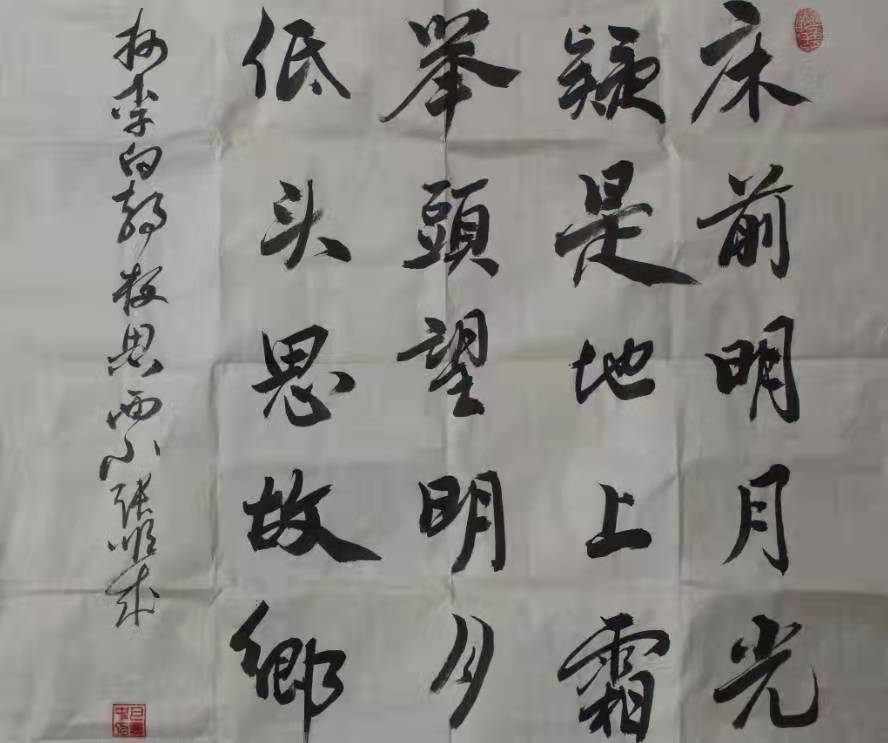 床前明月光
疑是地上霜
舉頭望明月
低头思故鄉
李白静夜思西小张